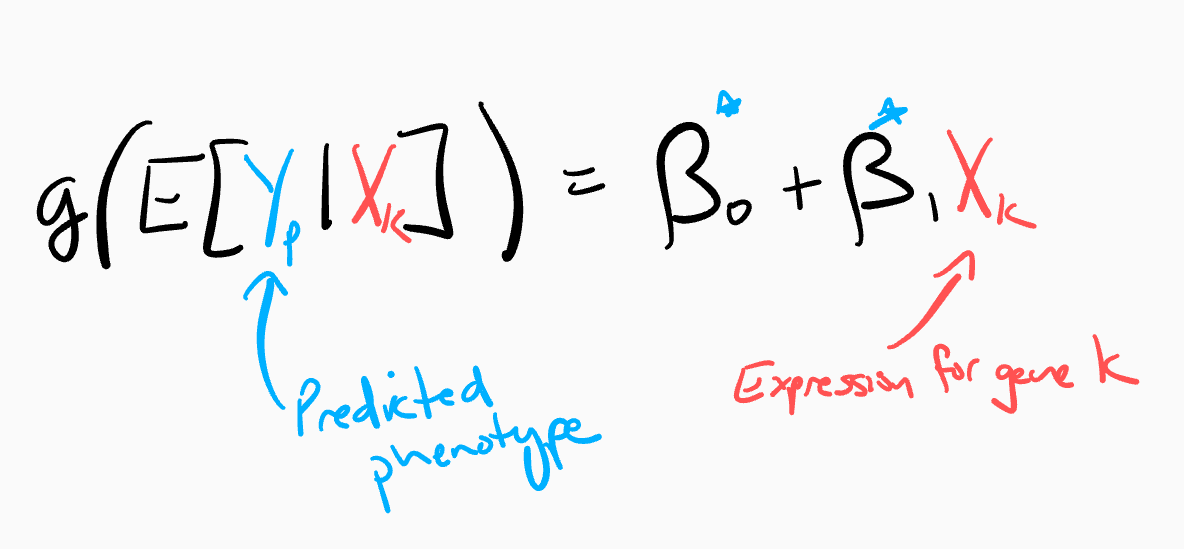 g(E[Yp|Xk]) = β₀* + β₁*Xk
Predicted
phenotype
Expression for gene k